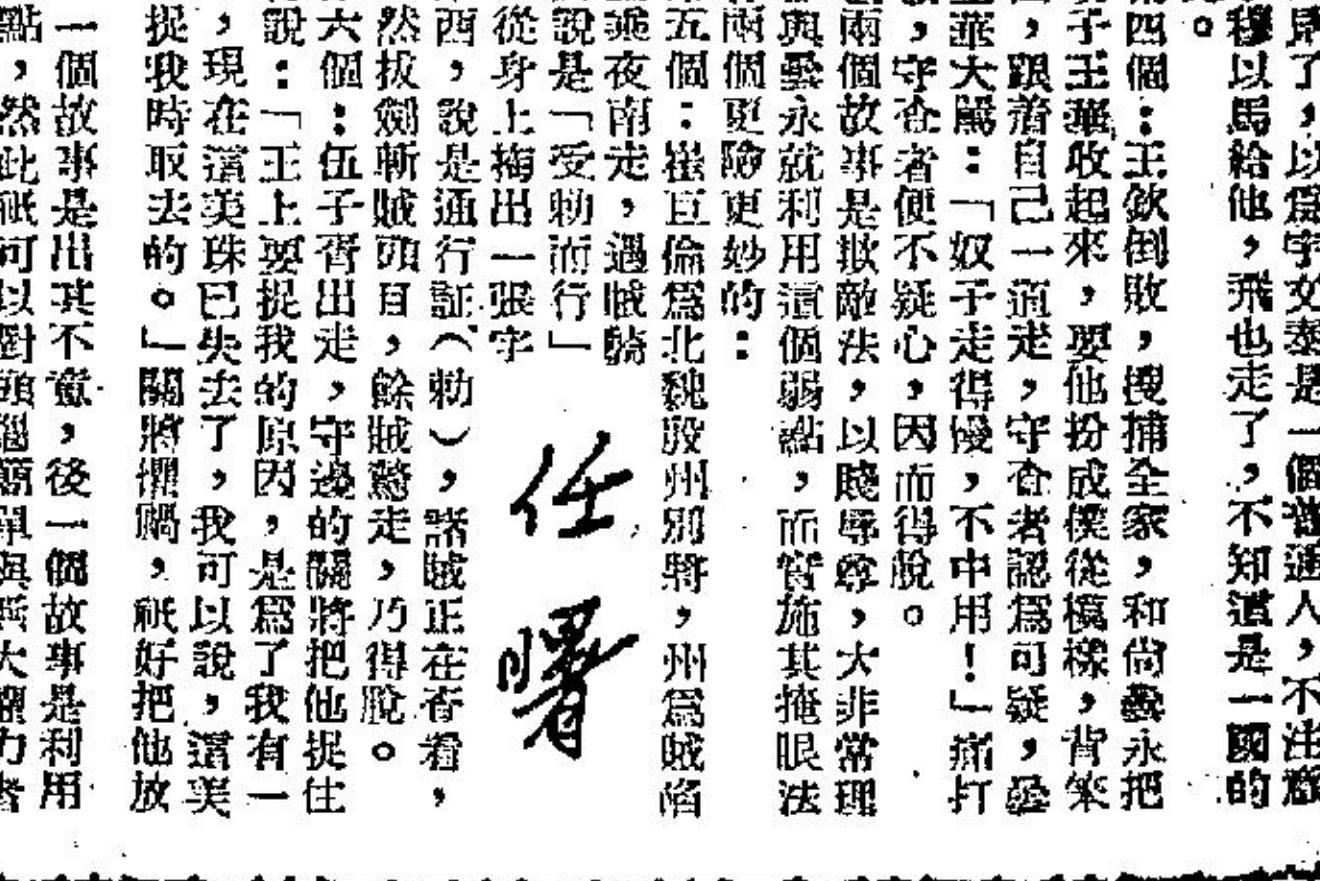 了,以爲宇文泰是一個普通人,不注意
穆以馬給他,飛也走了,不知道是一國的
。
四個:王欽倒敗,搜捕全家,和尚曇永把
子王華收起來,要他扮成僕從模樣,背笨
,跟着自己一道走,守查者認爲可疑,曇
華大駡:「奴子走得慢,不中用!」痛打
,守查者便不疑心,因而得脫。
兩個故事是欺敵法,以賤辱尊,大非常理
與曇永就利用這個弱點,而實施其掩眼法
兩個更險更妙的:
五個:崔巨倫爲北魏殷州別將,州爲賊陷
乘夜南走,遇賊騎
說是「受勅而行」
從身上掏出一張字
西,說是通行証(勅),諸賊正在查看,
然拔劍斬賊頭目,餘賊驚走,乃得脫。
六個:伍子胥出走,守邊的關將把他捉住
說:「王上要捉我的原因,是爲了我有一
,現在這美珠已失去了,我可以說,這美
捉我時取去的。」關將懼禍,祇好把他放
一個故事是出其不意,後一個故事是利用
點,然此祇可以對頭腦簡單與大權力者
任曙